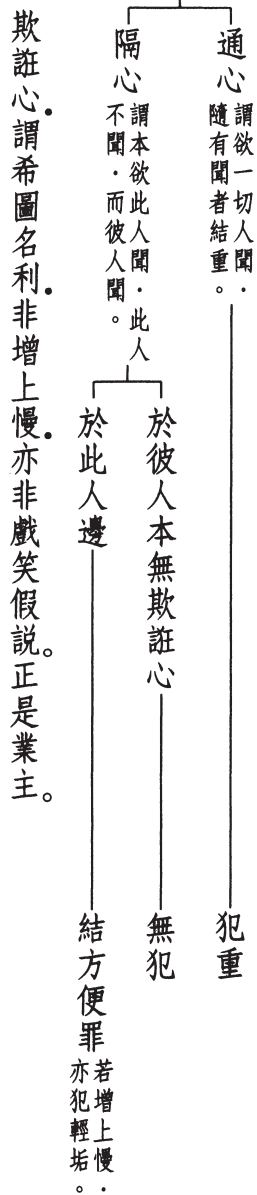 通心
謂欲一切人聞．
隨有聞者結重。
犯重
隔心
謂本欲此人聞．此人
不聞．而彼人聞。
於彼人本無欺誑心
無犯
於此人邊
結方便罪
若增上慢．
亦犯輕垢。
欺誑心．謂希圖名利．非增上慢．亦非戲笑假説。正是業主。